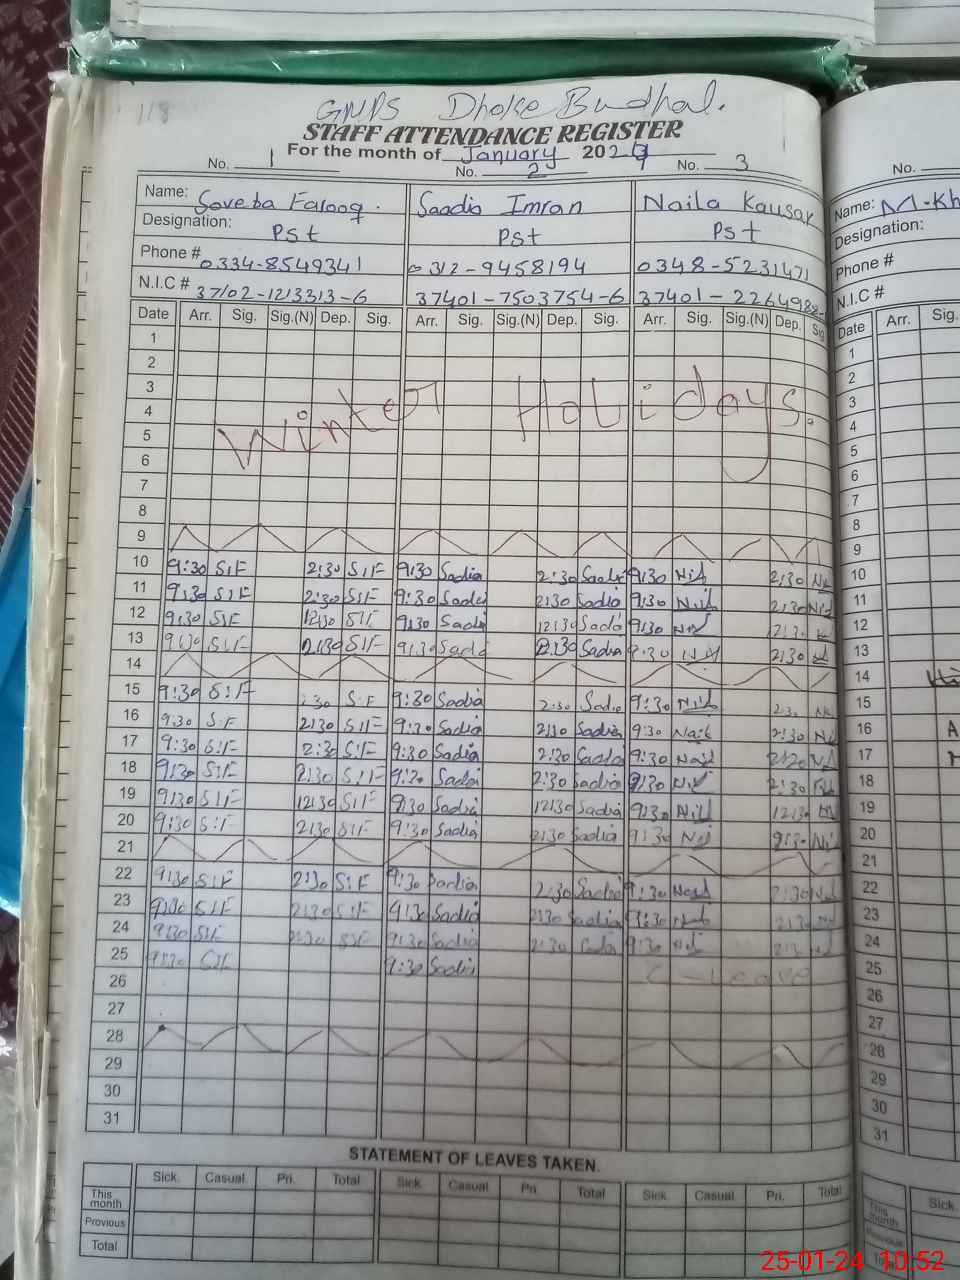 118
GMPS Dhoke Budhal.
STAFF ATTENDANCE REGISTER
For the month of January 2024
No. 1 No. 2 No. 3 No.
Name: Soveba Farooq. Saadia Imran Naila Kausar Name: M.Kh
Designation: Pst Pst Pst Designation:
Phone # 0334-8549341 0312-9458194 0348-5231471 Phone #
N.I.C # 37102-1213313-6 37401-7503754-6 37401-2264988- N.I.C #
Date Arr. Sig. Sig.(N) Dep. Sig. Arr. Sig. Sig.(N) Dep. Sig. Arr. Sig. Sig.(N) Dep. Sig Date Arr. Sig.
1 1
2 2
3 3
4 Winter Holidays. 4
5 5
6 6
7 7
8 8
9 9
10 9:30 S:F 2:30 S:F 9:30 Sadia 2:30 Sadia 9:30 2:30 10
11 9:30 S:F 2:30 S:F 9:30 Sadia 2:30 Sadia 9:30 2:30 11
12 9:30 S:F 12:30 S:F 9:30 Sadia 12:30 Sadia 9:30 12:30 12
13 9:30 S:F 2:30 S:F 9:30 Sadia 2:30 Sadia 9:30 2:30 13
14 14
15 9:30 S:F 2:30 S:F 9:30 Saadia 2:30 Sadia 9:30 2:30 15
16 9:30 S:F 2:30 S:F 9:30 Sadia 2:30 Sadia 9:30 2:30 16 A
17 9:30 S:F 2:30 S:F 9:30 Sadia 2:30 Saadia 9:30 2:30 17
18 9:30 S:F 2:30 S:F 9:30 Sadia 2:30 Saadia 9:30 2:30 18
19 9:30 S:F 12:30 S:F 9:30 Sadia 12:30 Sadia 9:30 12:30 19
20 9:30 S:F 2:30 S:F 9:30 Sadia 2:30 Sadia 9:30 2:30 20
21 21
22 9:30 S:F 2:30 S:F 9:30 Sadia 2:30 Sadia 9:30 2:30 22
23 9:30 S:F 2:30 S:F 9:30 Sadia 2:30 Sadia 9:30 2:30 23
24 9:30 S:F 2:30 S:F 9:30 Sadia 2:30 Sadia 9:30 2:30 24
25 9:30 S:F 9:30 Sadia C-Leave 25
26 26
27 27
28 28
29 29
30 30
31 31
STATEMENT OF LEAVES TAKEN.
Sick. Casual Pri. Total Sick. Casual Pri. Total Sick. Casual. Pri. Total Sick
This month This month
Previous Previous
Total
25-01-24 10:52